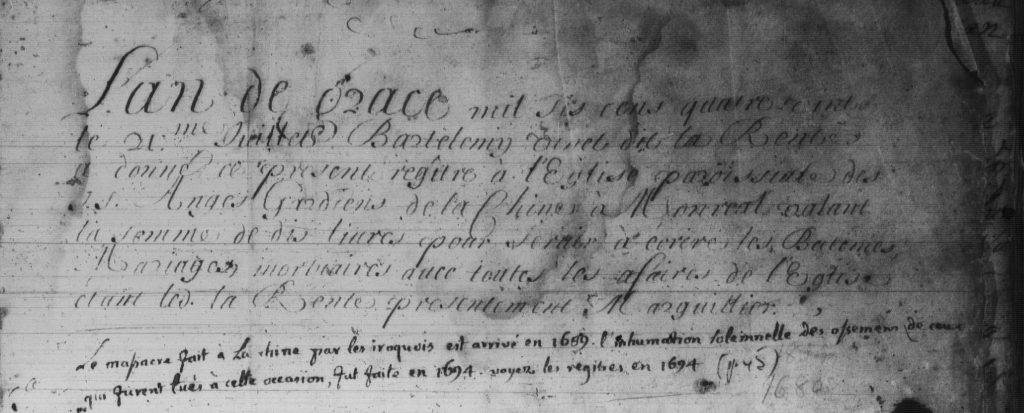 L'an de Grace mil sis cens quatre vints
le 21.me Juillet Bartelemy Vinet dit la Rente
a donné ce present regître à l'Eglise paroissiale des
S.s. Anges Gardiens de la Chine à Monreal valant
la somme de dis livres pour servir à écrire les Batemes,
Mariages, mortuaires avec toutes les afaires de l'Eglise
étant led. la Rente presentement Marguillier.
Le massacre fait à La chine par les iroquois est arrivé en 1689. l'inhumation solemnelle des ossemens de ceux
qui furent tués à cette occasion, fut faite en 1694. voyez les regitres en 1694 (p 45)
1680